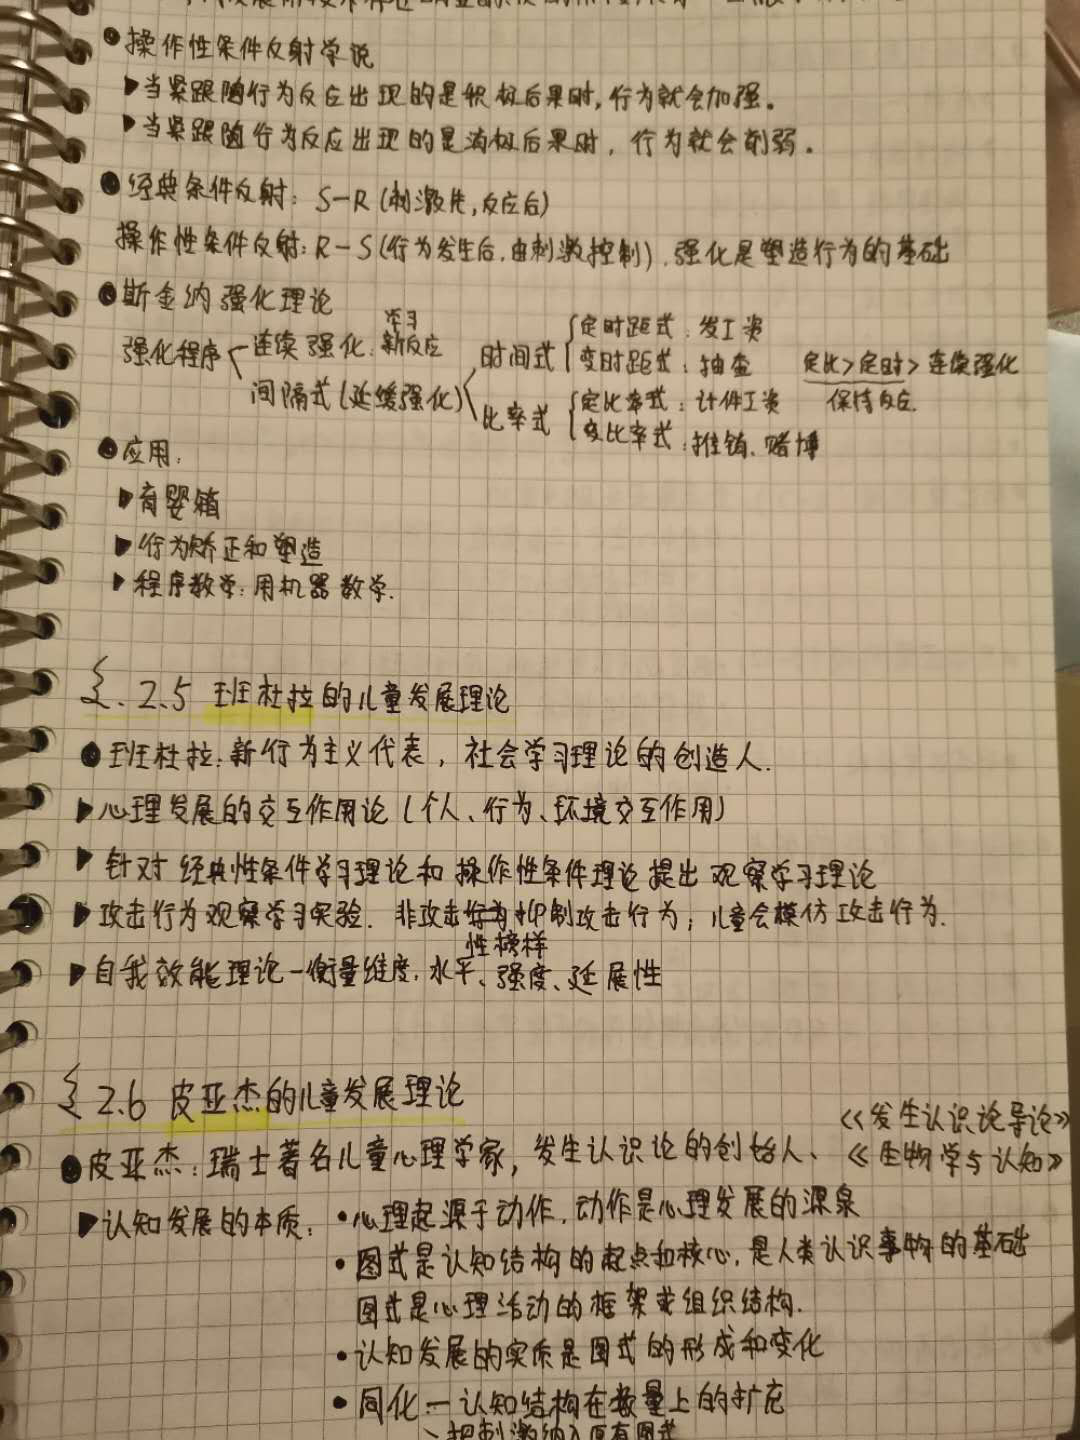 ●操作性条件反射学说
▶当紧跟随行为反应出现的是积极后果时,行为就会加强。
▶当紧跟随行为反应出现的是消极后果时,行为就会削弱。
●经典条件反射: S-R (刺激先,反应后)
操作性条件反射: R-S (行为发生后,由刺激控制),强化是塑造行为的基础
●斯金纳强化理论
强化程序 连续强化: 学习新反应
间隔式(延缓强化)
时间式 定时距式: 发工资
变时距式: 抽查
比率式 定比率式: 计件工资
变比率式: 推销、赌博
定比>定时>连续强化
保持反应.
●应用:
▶育婴箱
▶行为矫正和塑造
▶程序教学: 用机器教学.
§. 2.5 班杜拉的儿童发展理论
●班杜拉: 新行为主义代表, 社会学习理论的创造人.
▶心理发展的交互作用论 (个人、行为、环境交互作用)
▶针对 经典性条件学习理论和 操作性条件理论提出 观察学习理论
▶攻击行为观察学习实验. 非攻击性榜样抑制攻击行为; 儿童会模仿攻击行为.
▶自我效能理论-衡量维度. 水平、强度、延展性
§ 2.6 皮亚杰的儿童发展理论
《发生认识论导论》
●皮亚杰: 瑞士著名儿童心理学家, 发生认识论的创始人、《生物学与认知》
▶认知发展的本质: •心理起源于动作, 动作是心理发展的源泉
•图式是认知结构的起点和核心, 是人类认识事物的基础
图式是心理活动的框架或组织结构.
•认知发展的实质是图式的形成和变化
•同化 - 认知结构在数量上的扩充
把刺激纳入原有图式